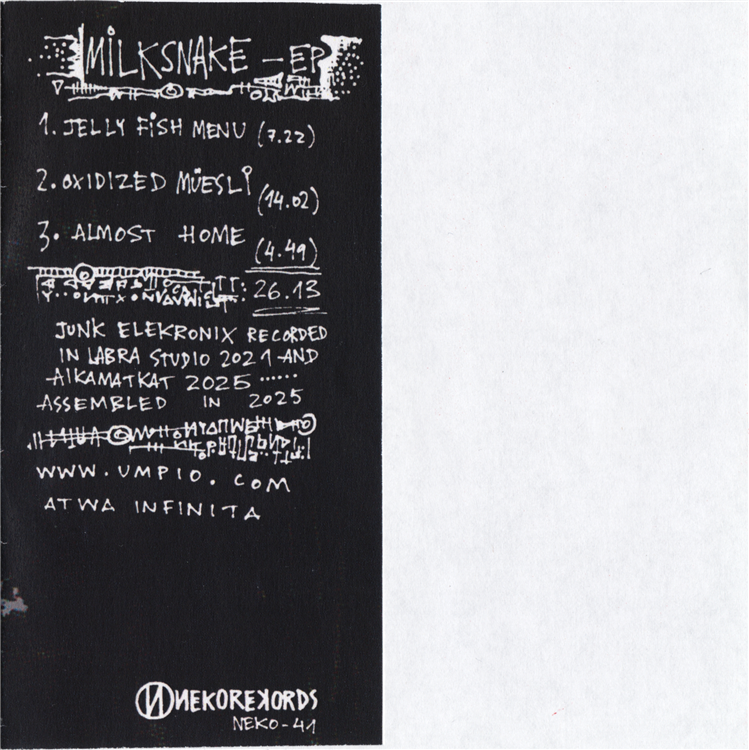 MILKSNAKE – EP
1. JELLY FISH MENU (7.22)
2. OXIDIZED MÜESLI (14.02)
3. ALMOST HOME (4.49)
TT: 26.13
JUNK ELEKRONIX RECORDED
IN LABRA STUDIO 2021 AND
AIKAMATKAT 2025 ......
ASSEMBLED IN 2025
WWW.UMPIO.COM
ATWA INFINITA
NEKOREKORDS
NEKO-41